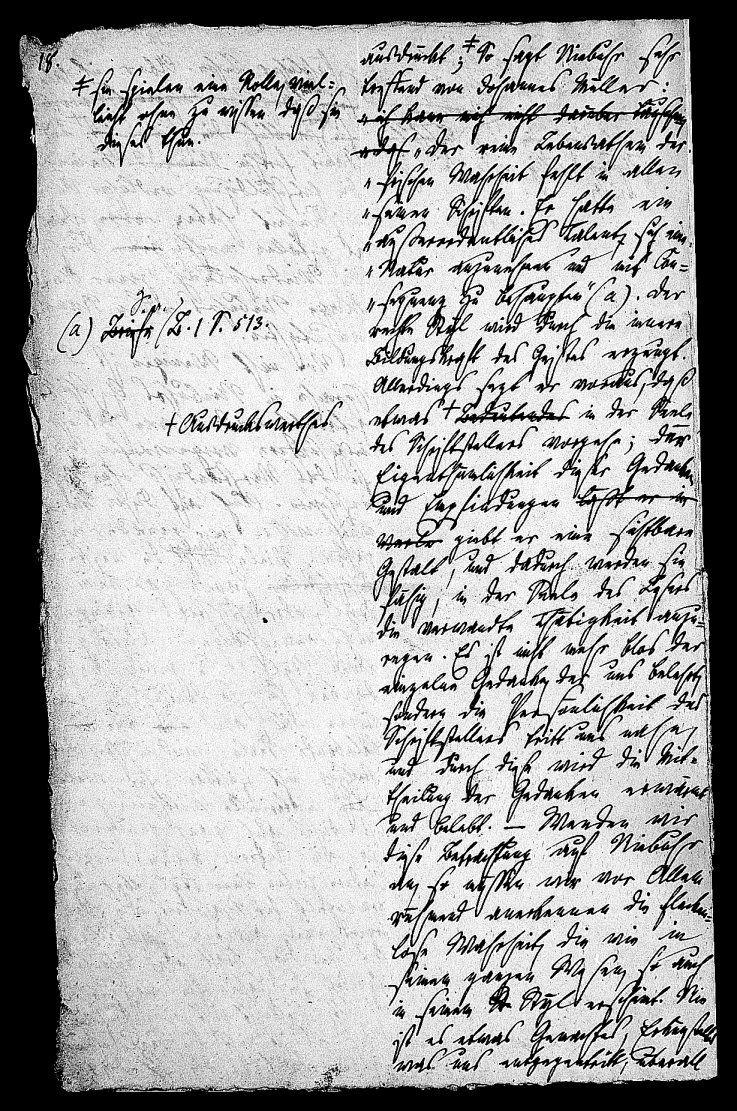 18.
‡ sie spielen eine Rolle, viel-
leicht ohne zu wissen daß sie
dieses thun.
(a) Briefe B. 1 S. 513.
† Ausdruckswerthes
ausdrückt; ‡ So sagt Niebuhr sehr
treffend von Johannes Müller:
„ich kann mich nicht darüber täuschen,
„daß „Der reine Lebensathem der
„frischen Wahrheit fehlt in allen
„seinen Schriften. Er hatte ein
„außerordentliches Talent, sich eine
„Natur anzunehmen und mit Con-
„sequenz zu behaupten" (a). Der
rechte Styl wird durch die innere
Bildungskraft des Geistes erzeugt.
Allerdings setzt er voraus, daß
etwas † Bedeutendes in der Seele
des Schriftstellers vorgehe; der
Eigenthümlichkeit dieser Gedanken
und Empfindungen läßt er in
Worte giebt er eine sichtbare
Gestalt, und dadurch werden sie
fähig, in der Seele des Lesers
die verwandte Thätigkeit anzu-
regen. Es ist nicht mehr blos der
einzelne Gedanke, der uns belehrt,
sondern die Persönlichkeit des
Schriftstellers tritt uns nahe,
und durch diese wird die Mit-
theilung der Gedanken erwärmt
und belebt. — Wenden wir
diese Betrachtung auf Niebuhr
an, so müssen wir vor Allem
rühmend anerkennen die flecken-
lose Wahrheit, die wie in
seinem ganzen Wesen, so auch
in seinem Styl erscheint. Nie
ist es etwas Gemachtes, Erkünsteltes
was uns entgegentritt, überall